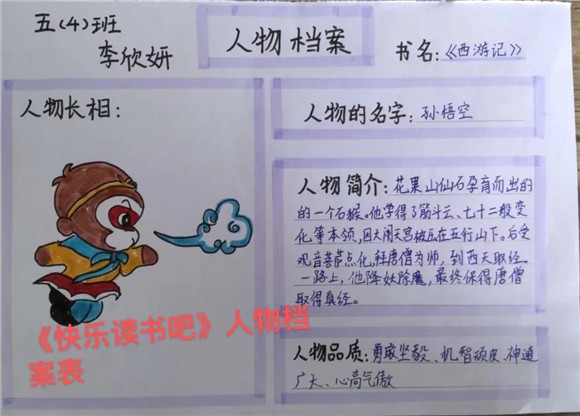 五(4)班
李欣妍
人物档案
书名:《西游记》
人物长相:
人物的名字:孙悟空
人物简介:花果山仙石孕育而出的
的一个石猴。他学得了筋斗云、七十二般变
化等本领,因大闹天宫被压在五行山下。后受
观音菩萨点化,拜唐僧为师,到西天取经。
一路上,他降妖除魔,最终保得唐僧
取得真经。
人物品质:勇敢坚毅、机智顽皮、神通
广大、心高气傲
《快乐读书吧》人物档
案表